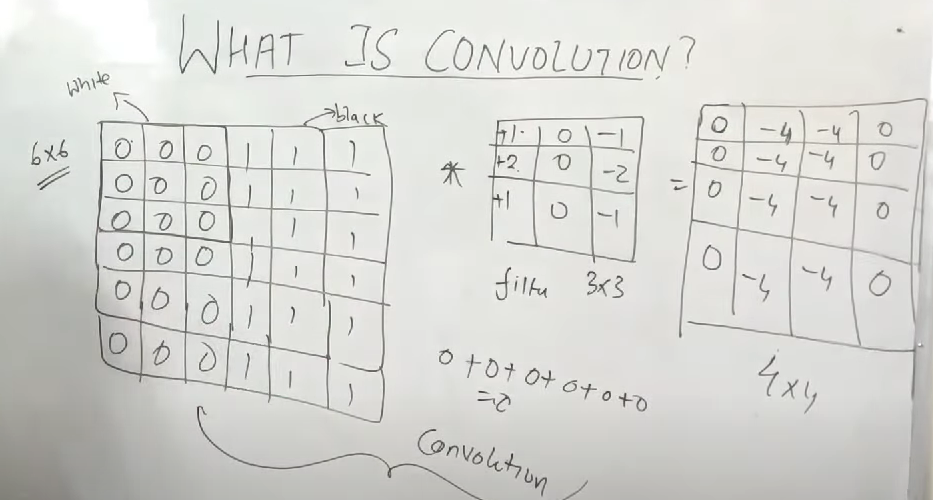 WHAT IS CONVOLUTION?
white
black
6x6
0 0 0 1 1 1
0 0 0 1 1 1
0 0 0 1 1
0 0 0 1 1 1
0 0 0 1 1 1
0 0 0 1 1 1
*
+1 0 -1
+2 0 -2
+1 0 -1
filter 3x3
=
0 -4 -4 0
0 -4 -4 0
0 -4 -4 0
0 -4 -4 0
4x4
0+0+0+0+0+0
=0
Convolution